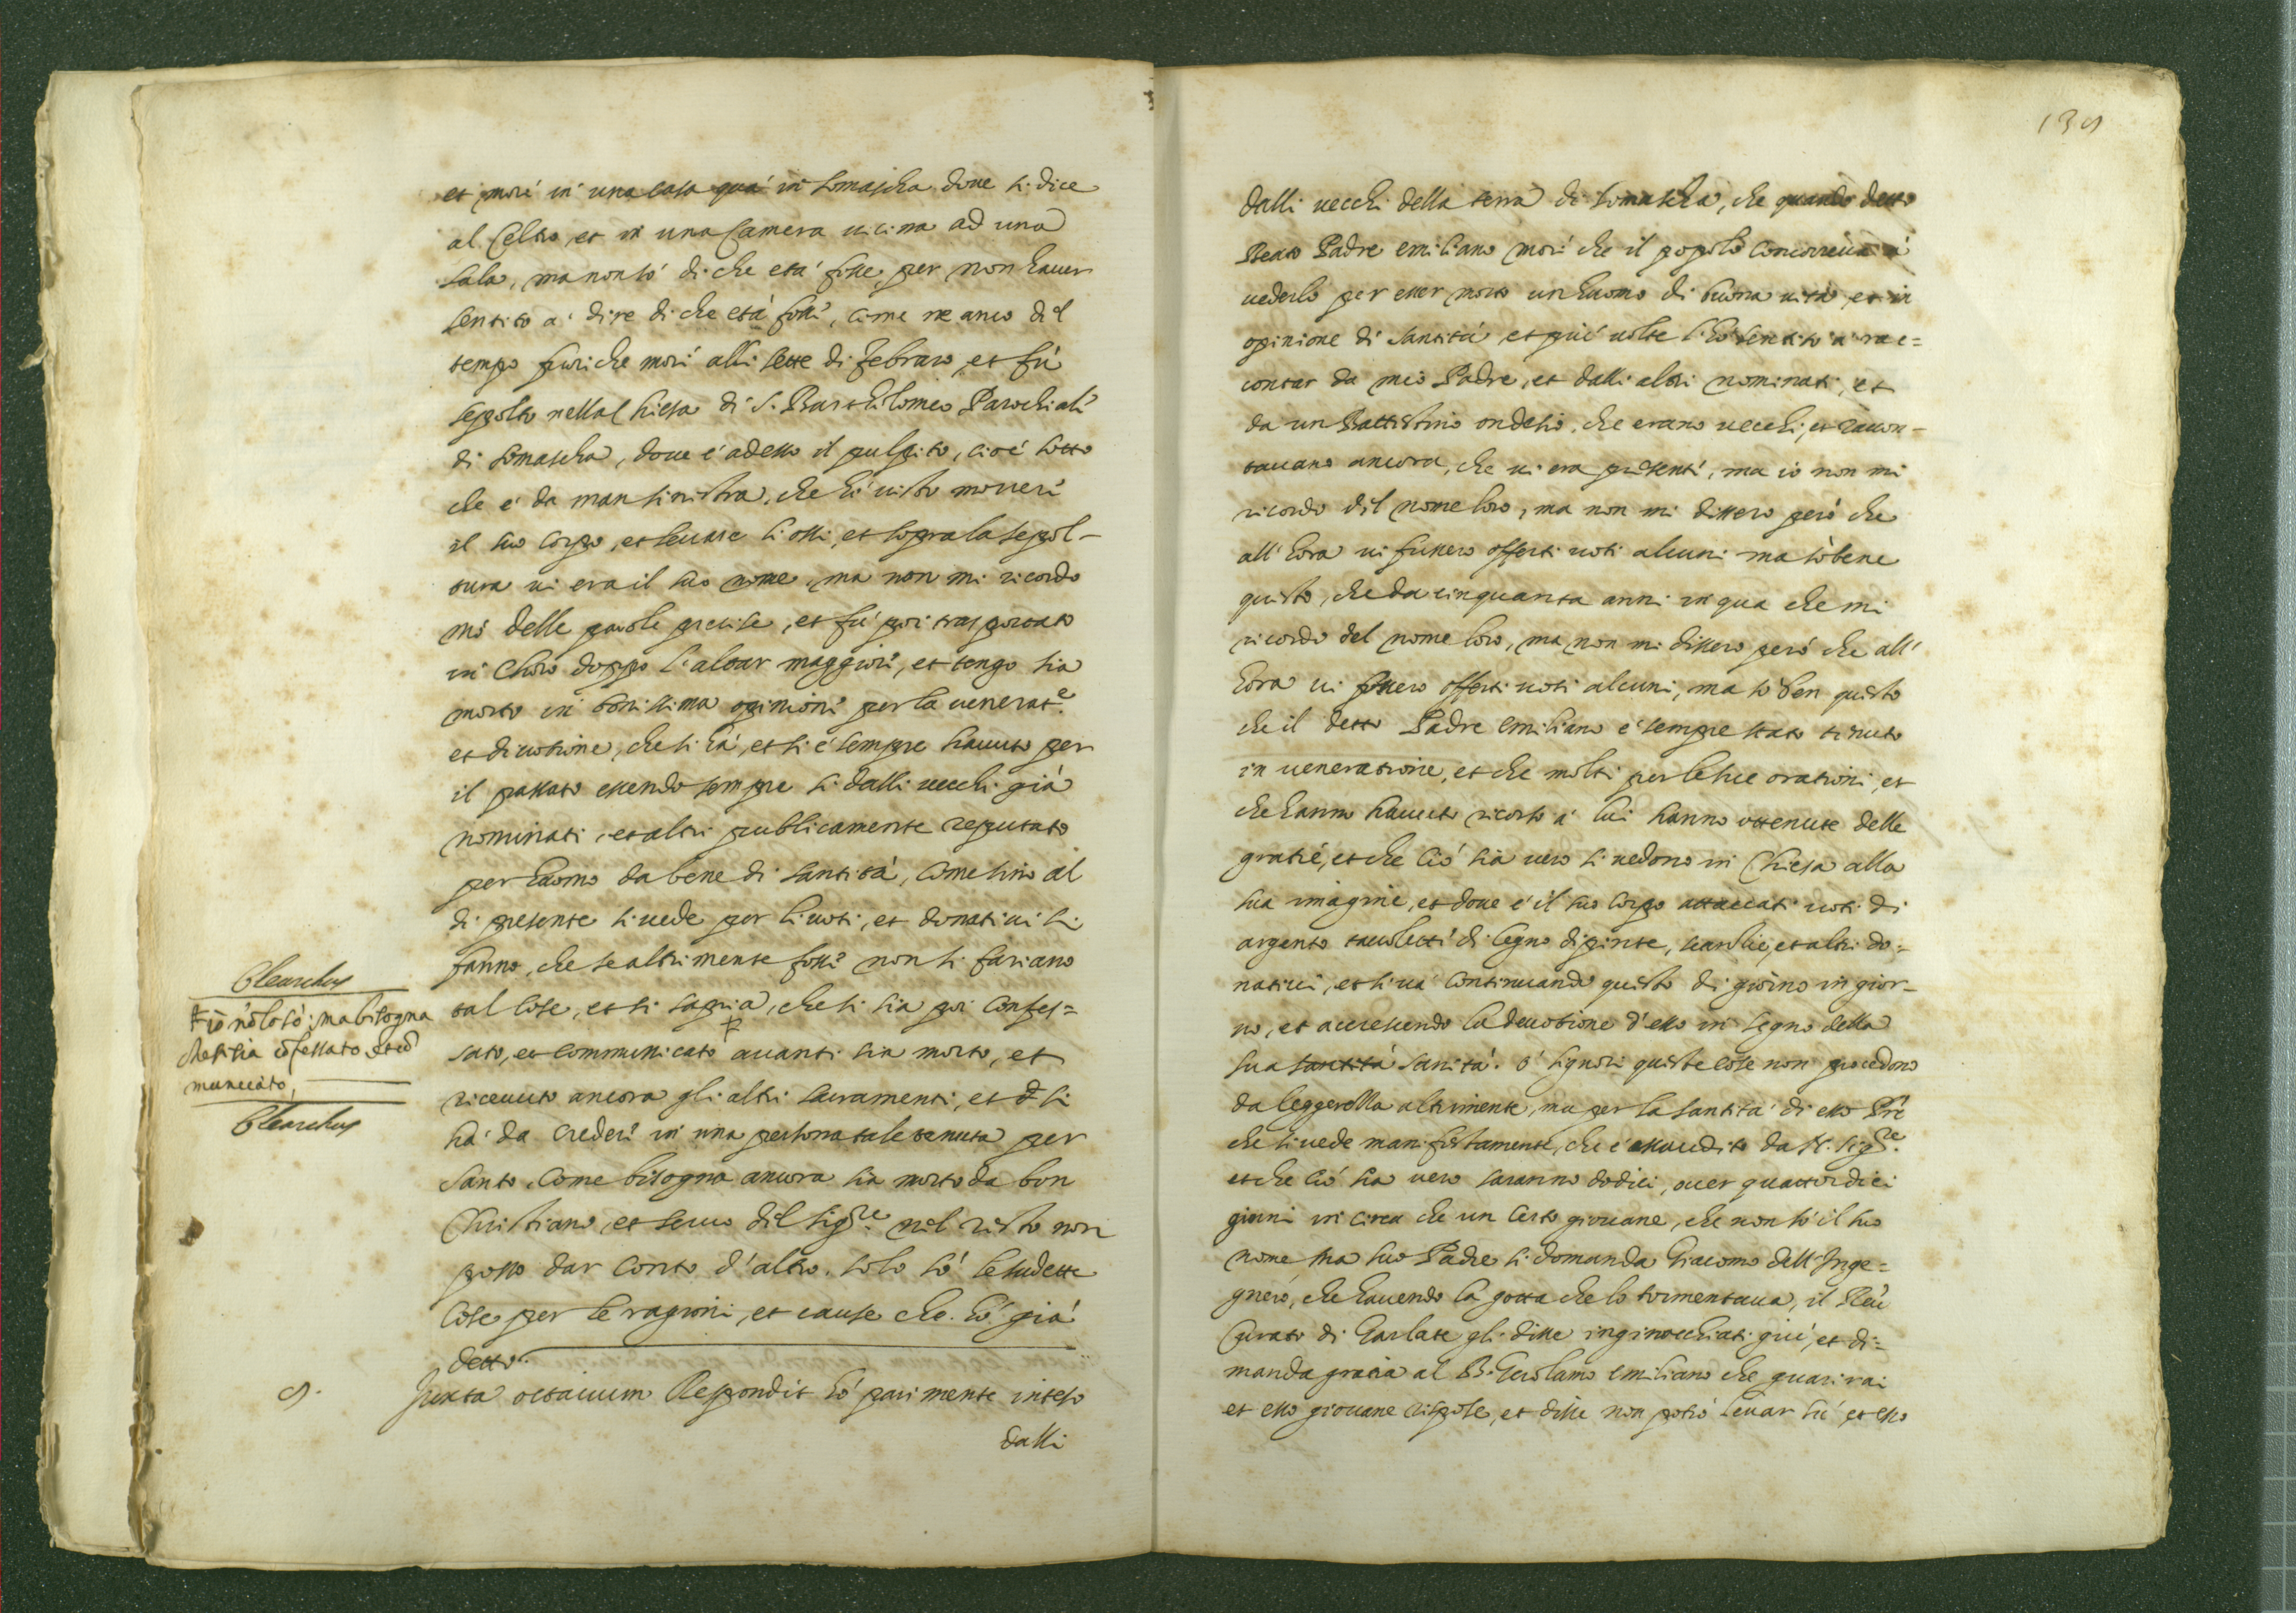 et morí in una casa quà in Somascha doue si dice
al Celtro, et in una Camera uicina ad una
sala, ma non sò di che età fosse, per non hauer
sentito à dire di che età fosse, come ne anco del
tempo fuori che morì alli sette di Febraro, et fù
sepolto nella Chiesa di S. Bartholomeo Parochiale
di Somascha, doue è adesso il pulpito, cioè sotto
che è da man sinistra, che hò uisto mouere
il suo corpo, et leuare li ossi, et sopra la sepol-
tura ui era il suo nome, ma non mi ricordo
mò delle parole precise, et fù poi trasportato
in Choro doppo l'altar maggiore, et tengo sia
morto in bonissima opinione per la venerat.e
et diuotione, che si hà, et si è sempre hauuto per
il passato essendo sempre sì dalli uecchi già
nominati, et altri publicamente reputato
per huomo da bene di santità, come sino al
di presente si uede per li uoti, et donatiui si
fanno, che se altrimente fosse non si fariano
tal cose, et si sapria, che si sia poi confes=
sato, et communicato ‡ auanti sia morto, et
riceuuto ancora gli altri sacramenti, et si
hà da credere in una persona tale tenuta per
santo, come bisogna ancora sia morto da bon
Christiano, et seruo del Sig.re nel resto non
posso dar conto d'altro, solo sò le sudette
cose per le ragioni, et cause che hò già
detto.
9. Juxta octauum Respondit hò parimente inteso
dalli
Clearchus
‡ io nò lo sò, ma bisogna
che si sia cõfessato et cõ
municato,
Clearchus
139
dalli uecchi della terra di Somascha, che quando detto
Beato Padre emiliano morì che il popolo concorreua à
uederlo per esser morto un huomo di buona uita, et in
opinione di santità et più uolte l'hò sentito à rac=
contar da mio Padre, et dalli altri nominati, et
da un Battistino ondesio, che erano uecchi, et raccon-
tauano ancora, che ui era presenti, ma io non mi
ricordo del nome loro, ma non mi dissero però che
all'hora ui fussero offerti uoti alcuni ma sò bene
questo, che da cinquanta anni in qua che mi
ricordo del nome loro, ma non mi dissero però che all'
hora ui fussero offerti uoti alcuni, ma sò ben questo
che il detto Padre emiliano è sempre stato tenuto
in ueneratione, et che molti per le sue orationi, et
che hanno hauuto ricorso à lui hanno ottenute delle
gratie, et che ciò sia uero si uedono in Chiesa alla
sua imagine, et doue è il suo corpo attaccati uoti di
argento tauolette di legno dipinte, scanlie, et altri do=
natiui, et si uà continuando questo di giorno in gior-
no, et accrescendo la deuotione d'esso in segno della
sua santità sanità. ò signori queste cose non procedono
da leggerezza altrimente, ma per la santità di esso Prè
che si uede manifestamente, che è essaudito da N. Sig.re
et che ciò sia uero saranno dodici, ouer quattordici
giorni in circa che un certo giouane, che non sò il suo
nome, ma suo Padre si domanda Giacomo dell'Inge=
gnero, che hauendo la gotta che lo tormentaua, il Reu
Curato di Garlate gli disse inginocchiati giù, et di=
manda gratia al B. Girolamo emiliano che guarirai
et esso giouane rispose, et disse non potrò leuar sù et esso